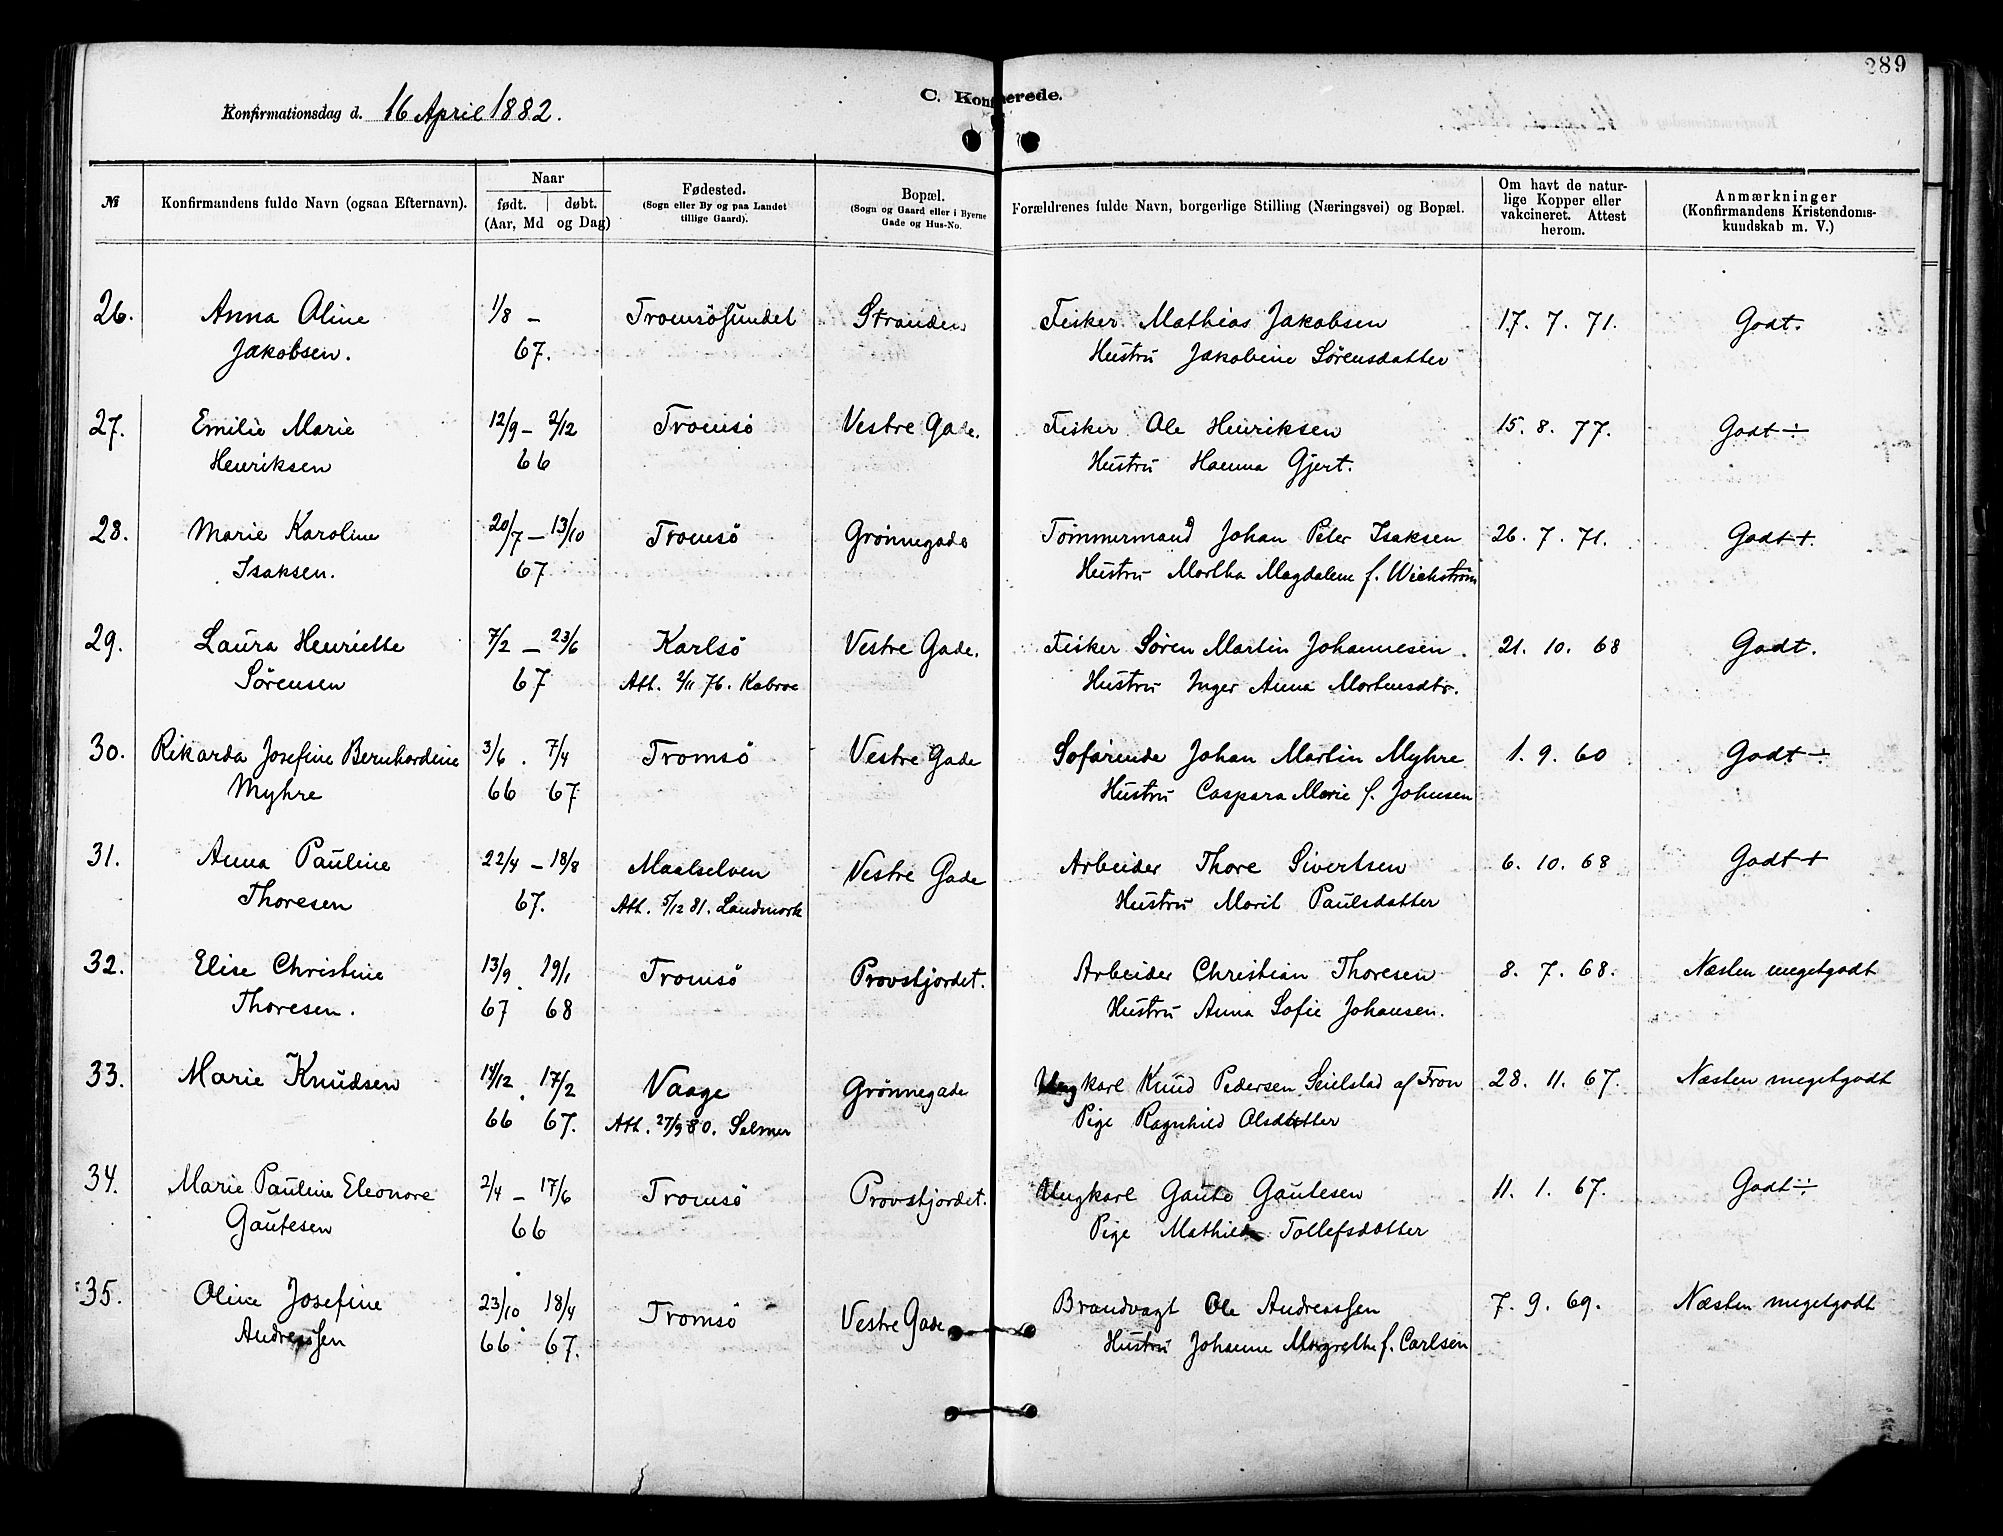 289
C. Konfirmerede.
Konfirmationsdag d. 16 April 1882.
№
Konfirmandens fulde Navn (ogsaa Efternavn).
Naar
født. døbt.
(Aar, Md og Dag)
Fødested.
(Sogn eller By og paa Landet
tillige Gaard).
Bopæl.
(Sogn og Gaard eller i Byerne
Gade og Hus-No.
Forældrenes fulde Navn, borgerlige Stilling (Næringsvei) og Bopæl.
Om havt de natur-
lige Kopper eller
vakcineret. Attest
herom.
Anmærkninger
(Konfirmandens Kristendoms-
kundskab m. V.)
26. Anna Oline 1/8 – Tromsösundet Stranden Fisker Mathias Jakobsen 17. 7. 71. Godt.
Jakobsen. 67. Hustru Jakobine Sörensdatter
27. Emilie Marie 12/9 – 2/12 Tromsö Vestre Gade. Fisker Ole Henriksen 15. 8. 77. Godt ÷
Henriksen 66 Hustru Hanna Gjert.
28. Marie Karoline 20/7 – 13/10 Tromsö Grönnegade Tömmermand Johan Peter Isaksen 26. 7. 71. Godt +.
Isaksen. 67 Hustru Martha Magdalene f. Wichström
29. Laura Henriette 7/2 – 23/6 Karlsö Vestre Gade. Fisker Sören Martin Johannesen. 21. 10. 68 Godt.
Sörensen 67 Att. 2/11 76. Kobroe Hustru Inger Anna Mortensdtr.
30. Rikarda Josefine Bernhardine 3/6. 7/4 Tromsö Vestre Gade Sofarende Johan Martin Myhre 1. 9. 60 Godt ÷
Myhre 66 67 Hustru Caspara Marie f. Johnsen
31. Anna Pauline 22/4 – 18/8 Maalselven Vestre Gade Arbeider Thore Sivertsen 6. 10. 68 Godt +
Thoresen 67. Att. 5/12 81. Landmark Hustru Marit Paulsdatter
32. Elise Christine 13/9. 19/1 Tromsö Provstjordet. Arbeider Christian Thoresen 8. 7. 68. Næsten megetgodt
Thoresen. 67 68 Hustru Anna Sofie Johansen.
33. Marie Knudsen 14/12. 17/2 Vaage Grönnegade Ungkarl Knud Pedersen Seielstad af Fron 28. 11. 67. Næsten megetgodt
66 67. Att. 27/9 80. Selmer Pige Ragnhild Olsdatter
34. Marie Pauline Eleonore 2/4 – 17/6 Tromsö Provstjordet. Ungkarl Gaute Gautesen 11. 1. 67. Godt ÷
Gautesen 66 Pige Mathilde Tollefsdatter
35. Oline Josefine 23/10. 18/4 Tromsö Vestre Gade Brandvagt Ole Andreassen 7. 9. 69. Næsten megetgodt
Andreassen 66 67. Hustru Johanne Margrethe f. Carlsen